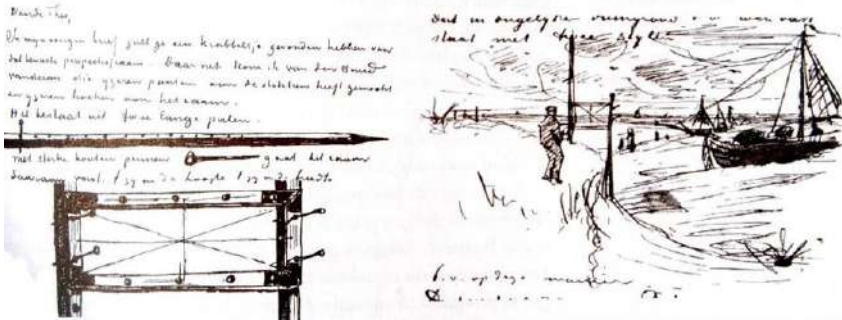 Waarde Theo,
In mijn vorigen brief zult ge een krabbeltje gevonden hebben van
dat bewuste perspectiefraam. Daar net kom ik van den smid
vandaan die ijzeren punten aan de stokken heeft gemaakt
en ijzeren hoeken aan het raam.
Het bestaat uit twee lange palen.
met sterke houten pennen gaat het raam
daaraan vast, 't zij in de hoogte 't zij in de breedte
dat in ongelijke
staat met twee
op deze manier